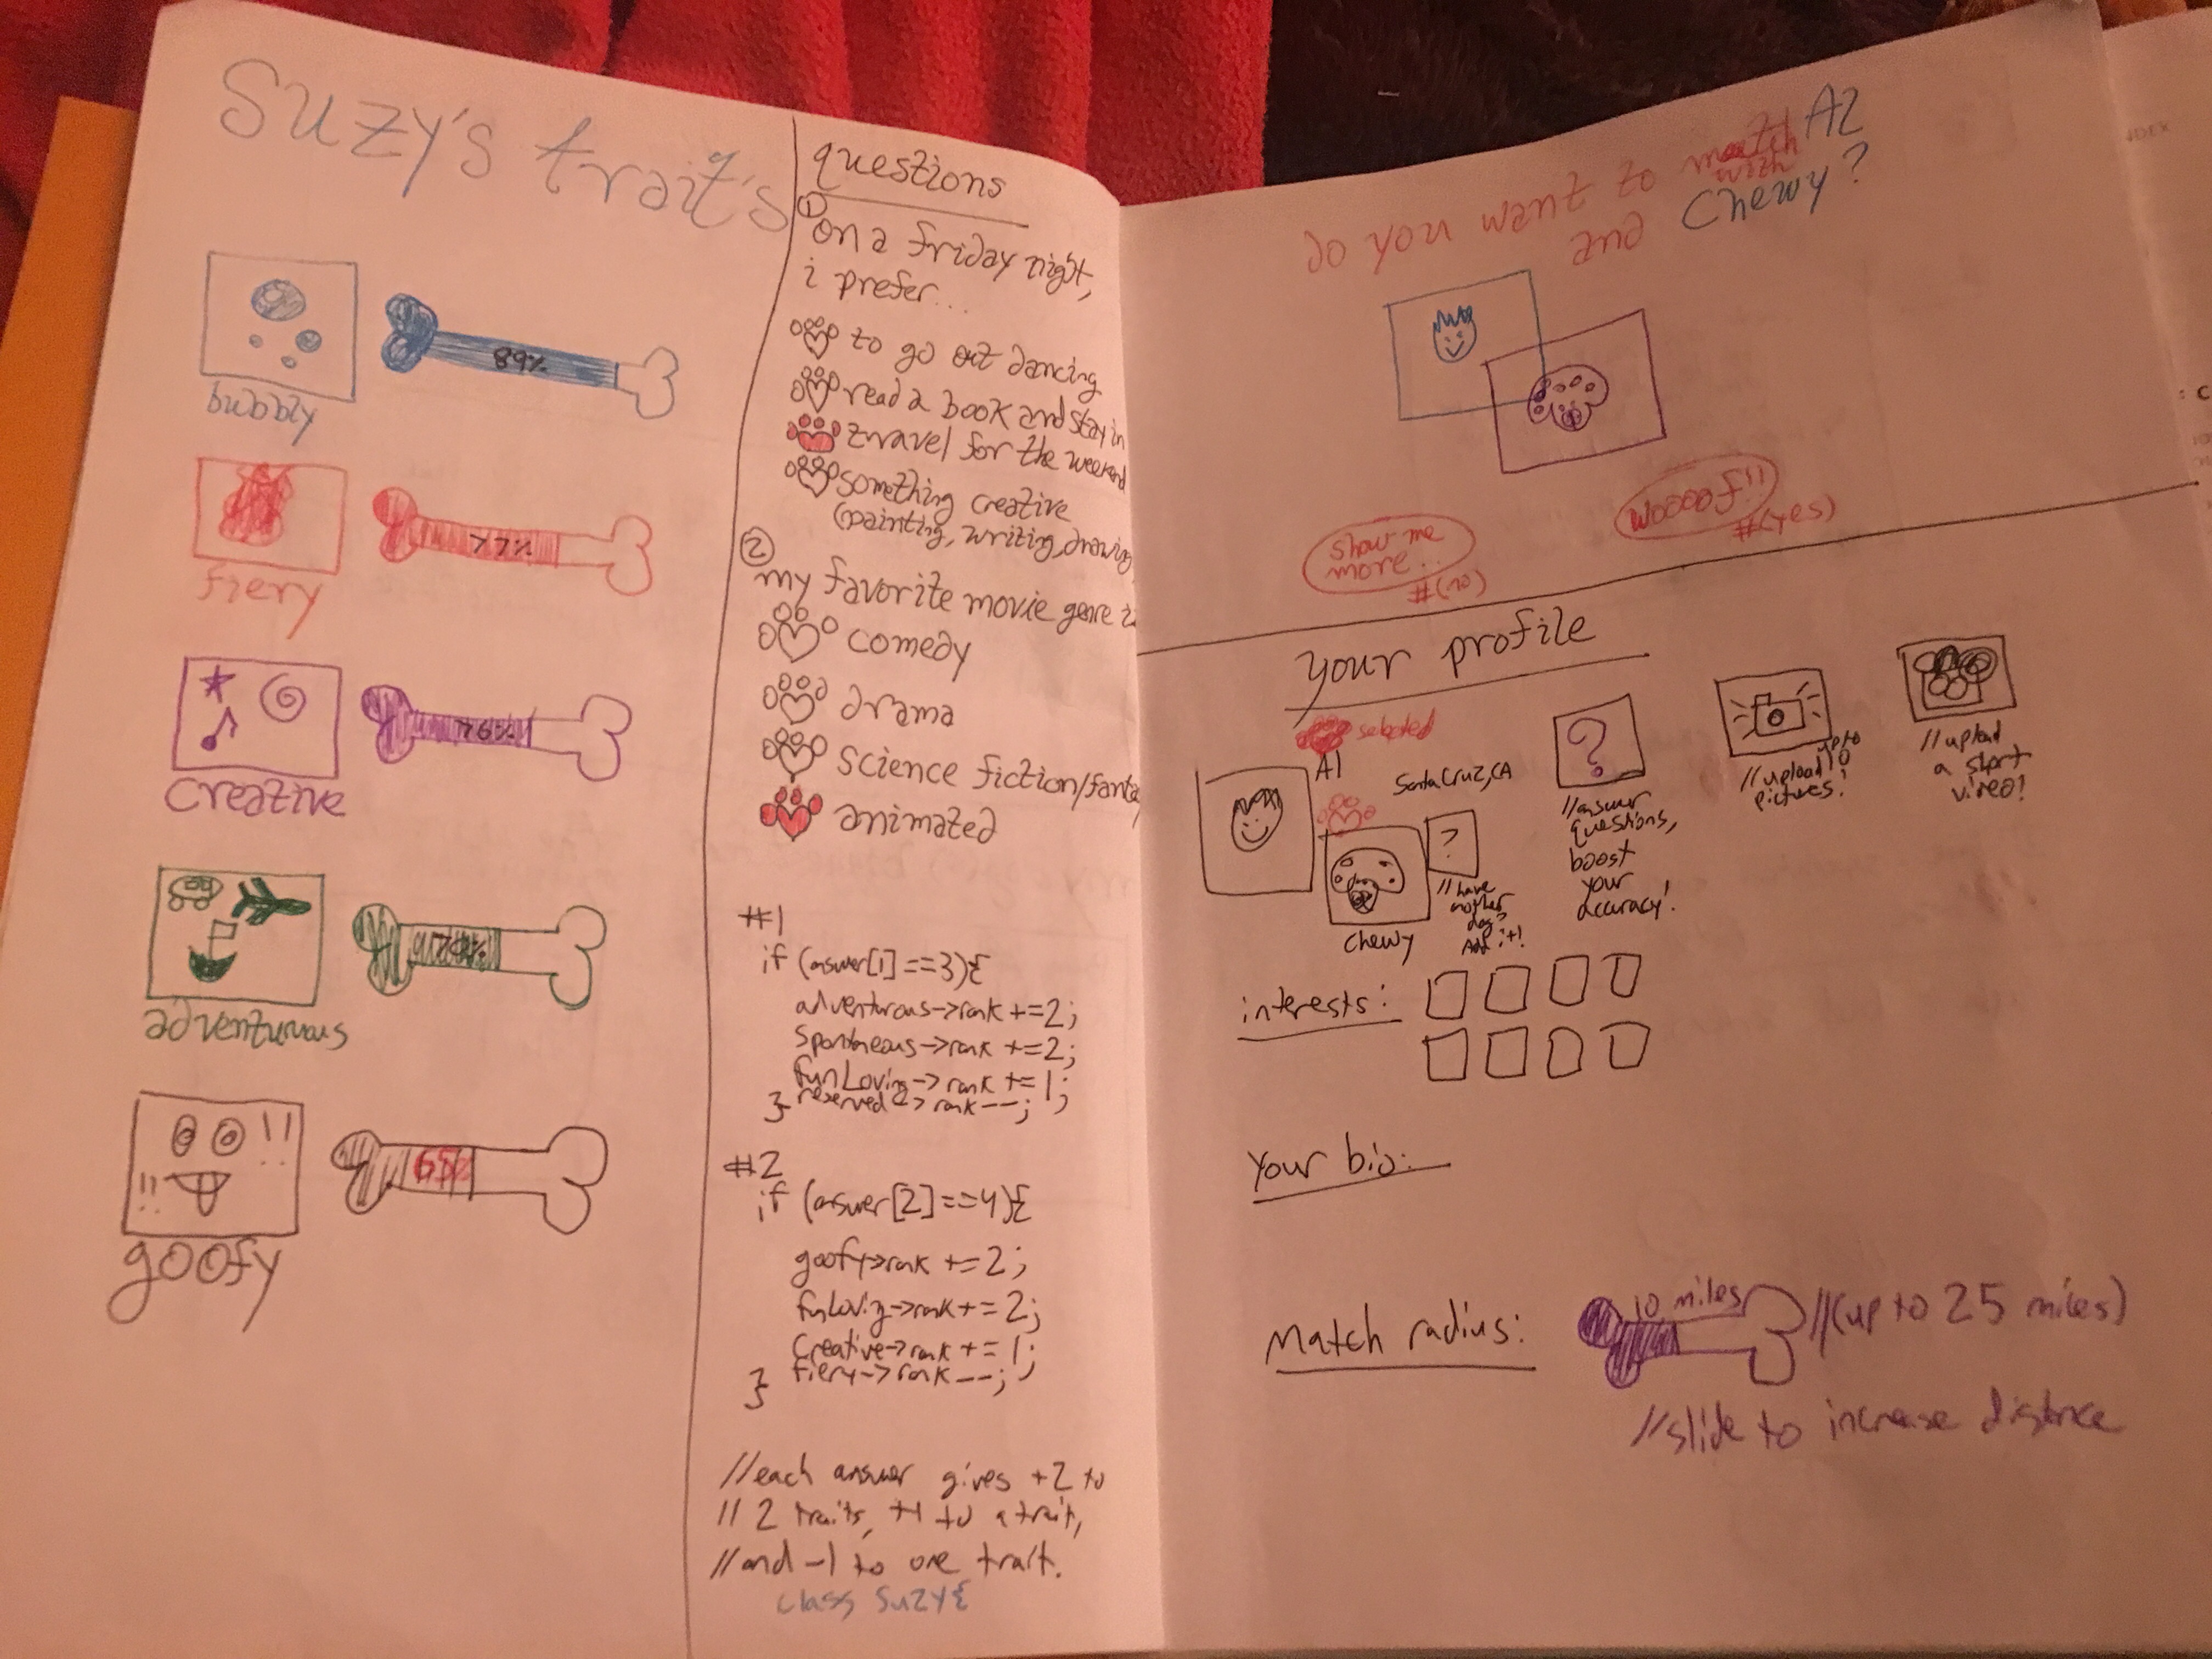 Suzy's trait's
bubbly
89%
fiery
77%
creative
76%
adventurous
70%
goofy
65%
questions
① on a friday night,
i prefer...
to go out dancing
read a book and stay in
travel for the weekend
something creative
(painting, writing, drawing
②
my favorite movie genre
comedy
drama
science fiction/fanta
animated
#1
if (answer[1]==3){
adventurous->rank +=2;
spontaneous->rank +=2;
funLoving->rank +=1;
reserved->rank--;
}
#2
if (answer[2]==4){
goofy->rank +=2;
funLoving->rank +=2;
creative->rank +=1;
fiery->rank--;
}
//each answer gives +2 to
// 2 traits, +1 to a trait,
//and -1 to one trait.
class Suzy{
do you want to match with Al
and Chewy?
show me
more..
#(no)
woooof!!
#(yes)
your profile
selected
Al
Santa Cruz, CA
Chewy
?
//have
another
dog?
Add it!
?
//answer
questions,
boost
your
accuracy!
//upload up to 10
pictures!
//upload
a short
video!
interests:
Your bio:
Match radius:
10 miles
//(up to 25 miles)
//slide to increase distance